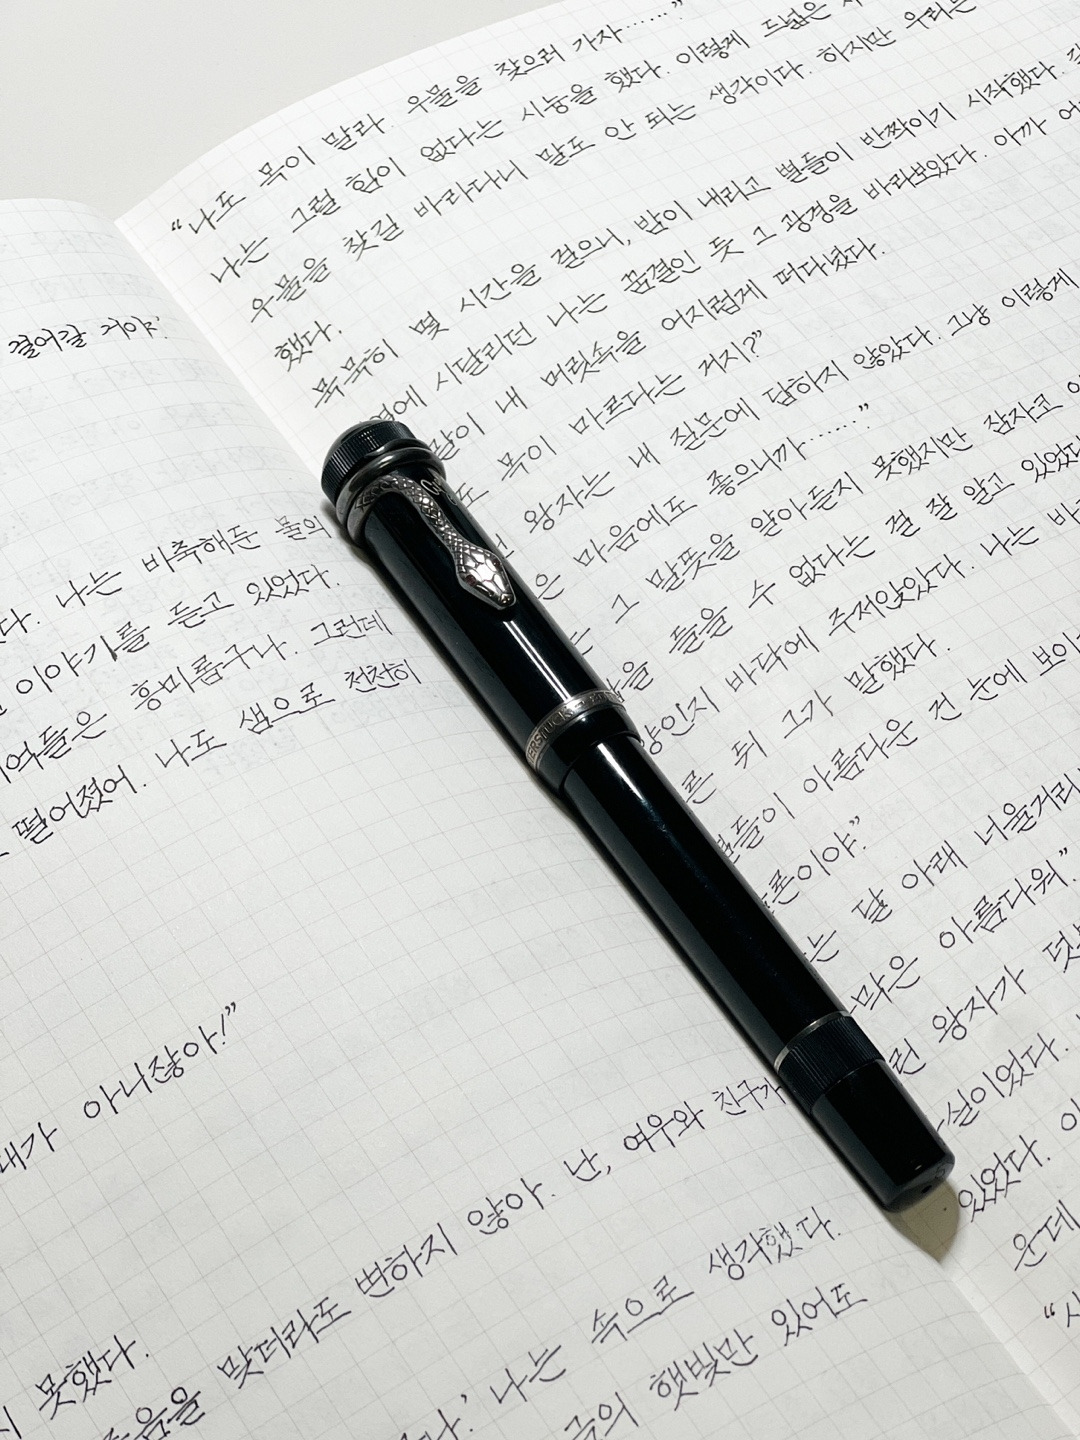 걸어갈 거야.'
다. 나는 비축해둔 물의
이야기를 듣고 있었다.
억들은 흥미롭구나. 그런데
떨어졌어. 나도 샘으로 천천히
내가 아니잖아!”
변하지 않아. 난, 여우와 친구가
못했다.
맞더라도
나는 속으로 생각했다.
햇빛만 있어도
“나도 목이 말라. 우물을 찾으러 가자……”
나는 그럴 힘이 없다는 시늉을 했다. 이렇게 드넓은
우물을 찾길 바라다니 말도 안 되는 생각이다. 하지만 우리는
했다.
묵묵히 몇 시간을 걸으니, 밤이 내리고 별들이 반짝이기 시작했다.
시달리던 나는 꿈결인 듯 그 광경을 바라보았다. 아까
말이 내 머릿속을 어지럽게 떠다녔다.
도 목이 마르다는 거지?”
왕자는 내 질문에 답하지 않았다. 그냥 이렇게
은 마음에도 좋으니까……”
그 말뜻을 알아듣지 못했지만 잠자코
들을 수 없다는 걸 잘 알고 있었다
양인지 바닥에 주저앉았다. 나는
른 뒤 그가 말했다.
별들이 아름다운 건 눈에 보이
이야.”
는 달 아래 너울거리
막은 아름다워.”
런 왕자가
실이었다.
있었다.
운데